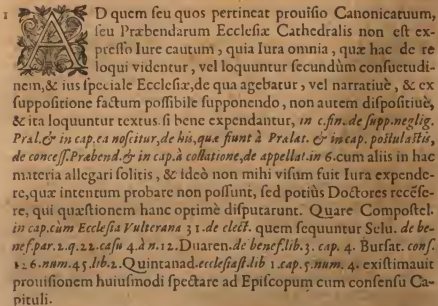 1 AD quem seu quos pertineat prouisio Canonicatuum,
seu Præbendarum Ecclesiæ Cathedralis non est ex-
presso Iure cautum, quia Iura omnia, quæ hac de re
loqui videntur, vel loquuntur secundùm consuetudi-
nem, & ius speciale Ecclesiæ, de qua agebatur, vel narratiuè, & ex
suppositione factum possibile supponendo, non autem dispositiuè,
& ita loquuntur textus. si bene expendantur, in c. fin. de supp. neglig.
Pral. & in cap. ea noscitur, de his, quæ fiunt à Pralat. & in cap. postulastis,
de concess. Præbend. & in cap. à collatione, de appellat. in 6. cum aliis in hac
materia allegari solitis, & ideò non mihi visum fuit Iura expende-
re, quæ intentum probare non possunt, sed potiùs Doctores recése-
re, qui quæstionem hanc optimè disputarunt. Quare Compostel.
in cap. cùm Ecclesia Vulterana 31. de elect. quem sequuntur Selu. de be-
nef. par. 2. q. 22. casu 4. à n. 12. Duaren. de benef. lib. 3. cap. 4. Bursat. cons.
126. num. 45. lib. 2. Quintanad. ecclesiast. lib 1. cap. 5. num. 4. existimauit
prouisionem huiusmodi spectare ad Episcopum cum consensu Ca-
pituli.